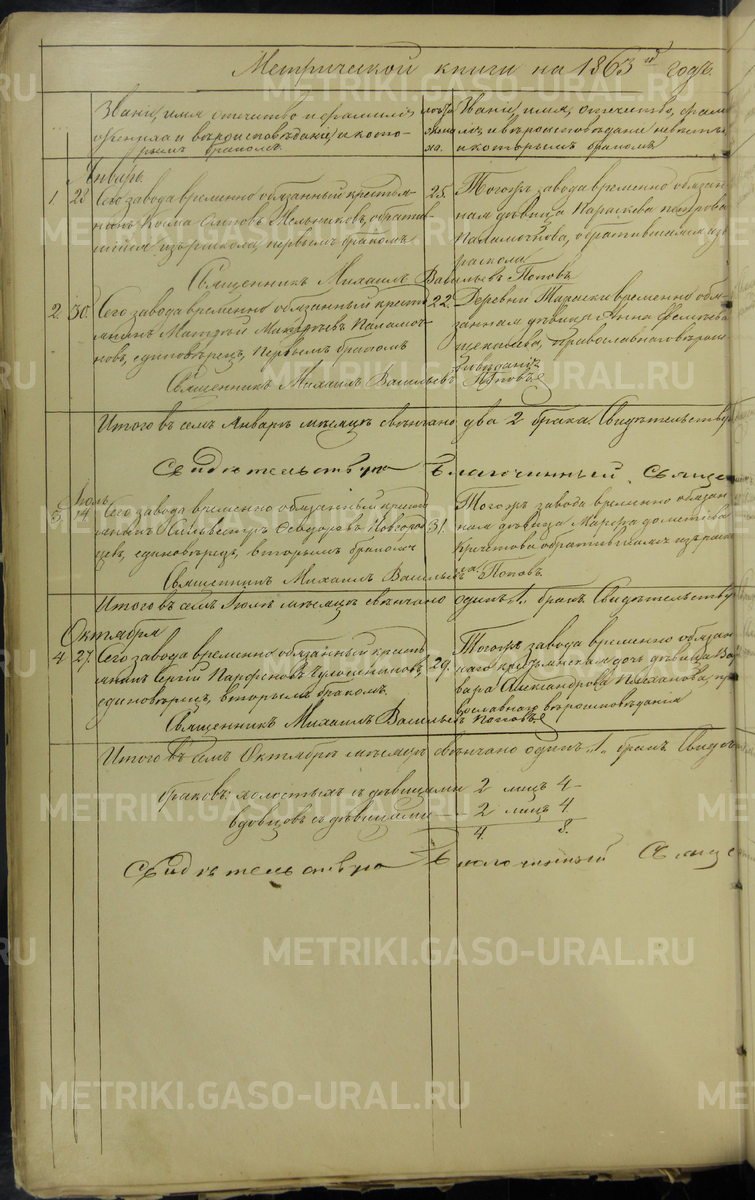 Метрической книги на 1863й годъ.
Званіе, имя, отчество и фамилія
жениха и вѣроисповѣданіе, и кото-
рымъ бракомъ.
Званіе, имя, отчество, фами-
лія, и вѣроисповѣданіе невѣсты
и которымъ бракомъ
Январь.
1. 23 Сего завода временно обязанный крестья-
нинъ Косма Мельниковъ, обрати-
вшійся изъ раскола, первымъ бракомъ
25. Тогожъ завода временно обязан-
ная дѣвица Параскева Петрова
Паламочнова, обратившаяся изъ
раскола
Священникъ Михаилъ Васильевъ Поповъ
2. 30. Сего завода временно обязанный кресть
янинъ Матвѣй Паламоч-
новъ, единовѣрецъ, первымъ бракомъ
22. Деревни Тараски временно обя-
занная дѣвица Анна
православнаго вѣроис-
повѣданія
Священникъ Михаилъ Васильевъ Поповъ
Итого въ семъ Январѣ мѣсяцѣ свѣнчано два 2 брака. Свидѣтельству
Свидѣтельствую Благочинный Свяще
Іюль
3. 14. Сего завода временно обязанный кресть
янинъ Сильвестръ Ѳеодоровъ Новгоро-
цевъ, единовѣрецъ, вторымъ бракомъ
31. Тогожъ завода временно обязан-
ная дѣвица Марѳа Дометіева
Кречетова обратившаяся изъ раско
ла.
Священникъ Михаилъ Васильевъ Поповъ.
Итого въ семъ Іюлѣ мѣсяцѣ свѣнчано одинъ „1„ бракъ. Свидѣтельству
Октябрь
4 27. Сего завода временно обязанный кресть
янинъ Сергій Парѳеновъ
единовѣрецъ, вторымъ бракомъ.
29. Тогожъ завода временно обязан-
наго крестьянина дочь дѣвица Вар
вара Александрова Плеханова, пра
вославнаго вѣроисповѣданія
Священникъ Михаилъ Васильевъ Поповъ
Итого въ семъ Октябрѣ мѣсяцѣ свѣнчано одинъ „1„ бракъ Свидѣт
браковъ: холостыхъ съ дѣвицами 2 лицъ 4
вдовцовъ съ дѣвицами 2 лицъ 4
4. 8.
Свидѣтельствую Благочинный Свяще
METRIKI.GASO-URAL.RU